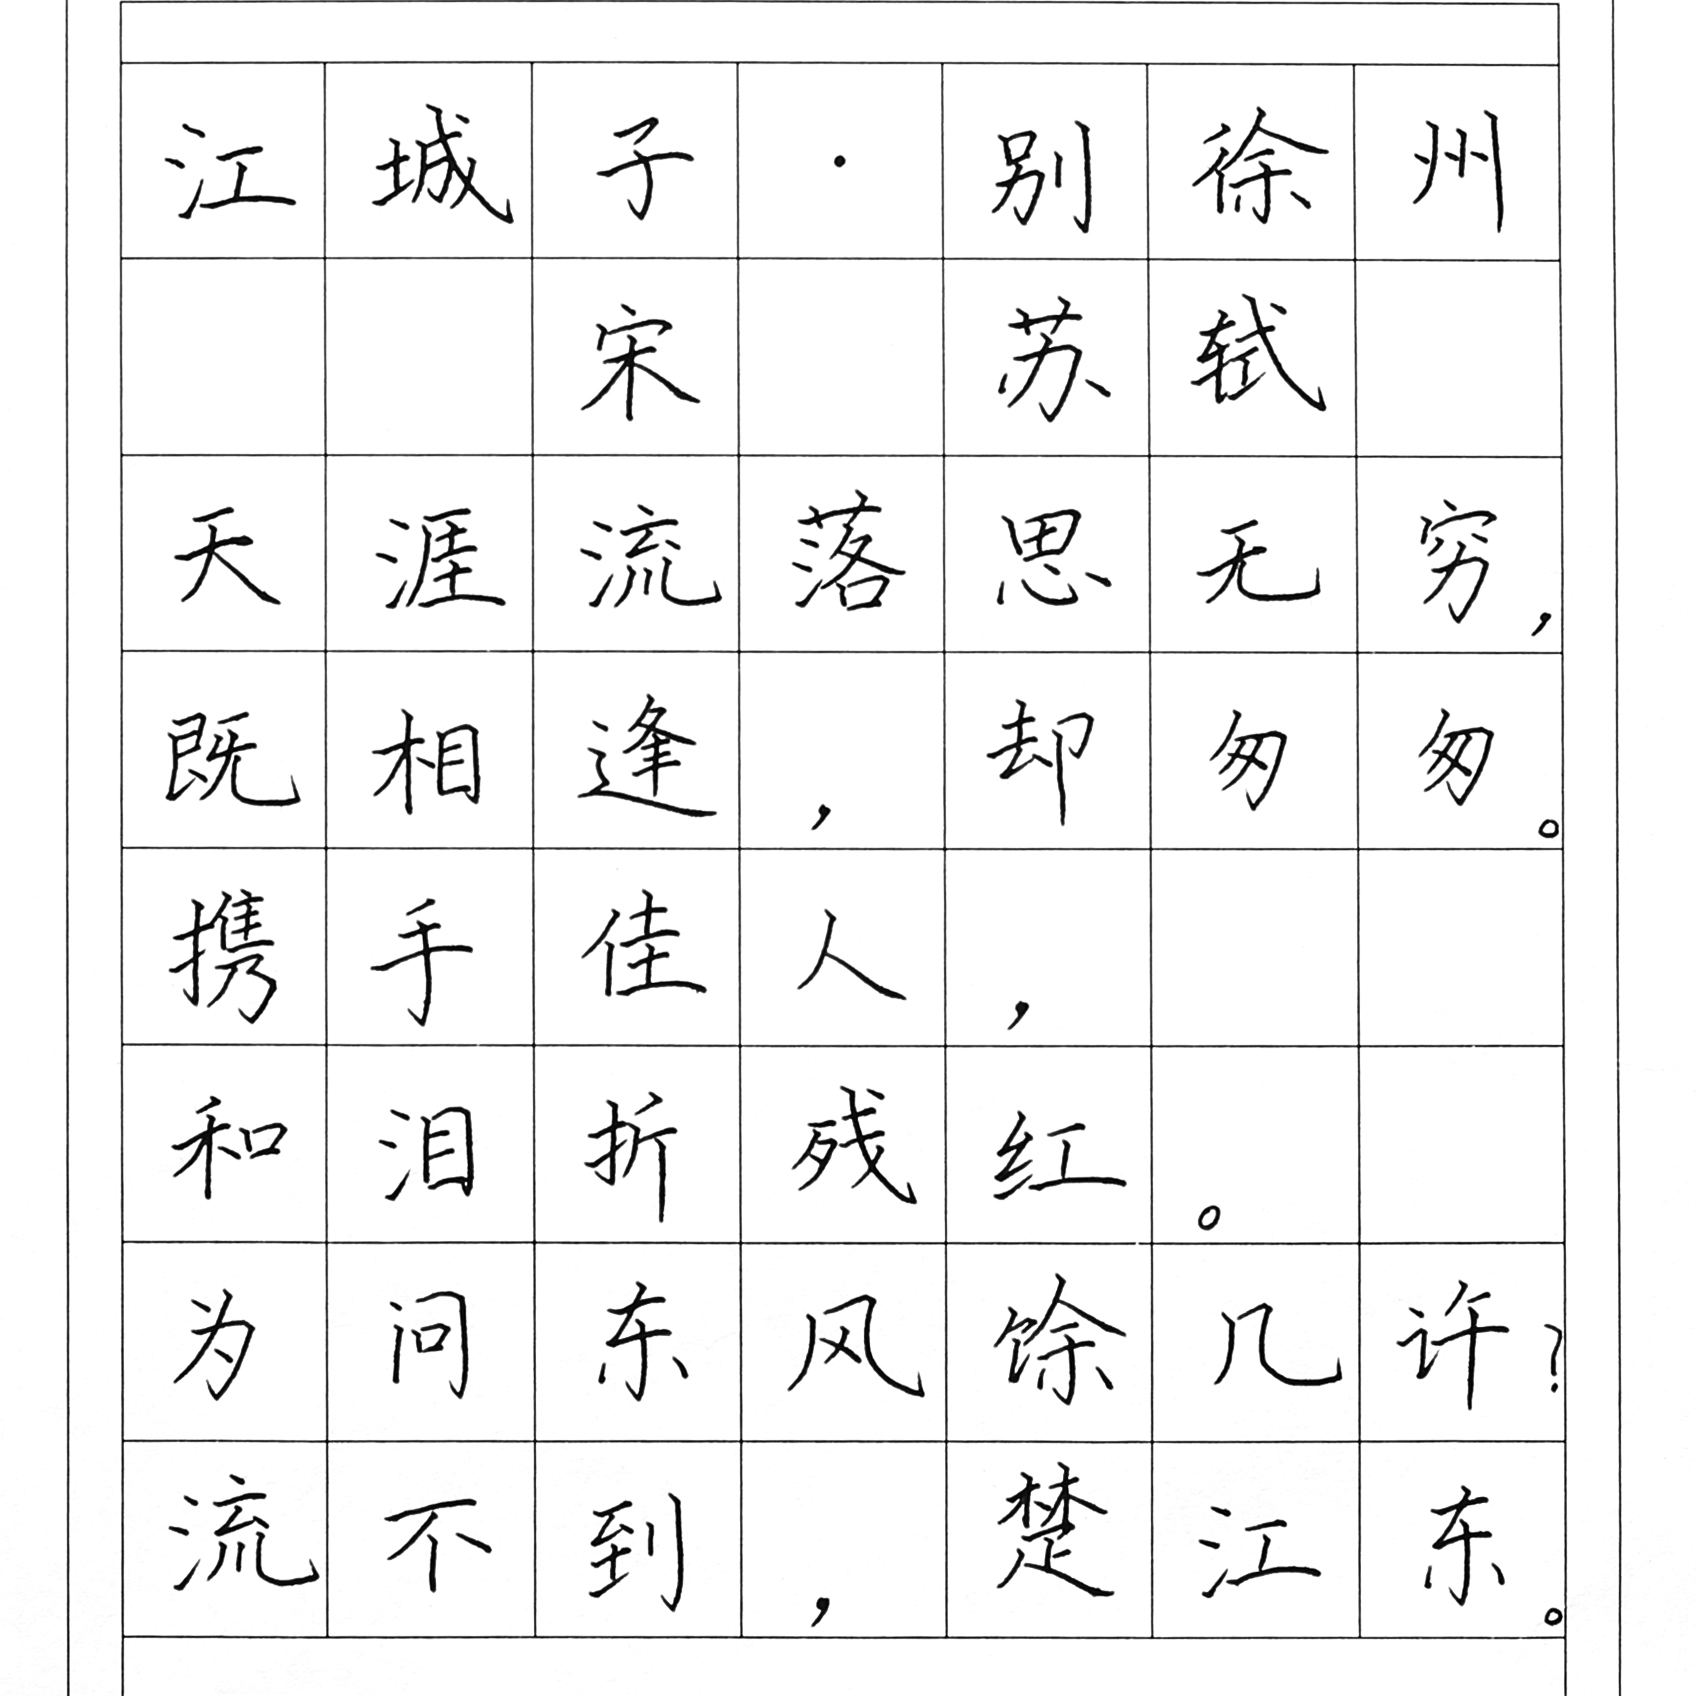 江城子·别徐州
宋 苏轼
天涯流落思无穷，
既相逢，却匆匆。
携手佳人，
和泪折残红。
为问东风馀几许？
流不到，楚江东。